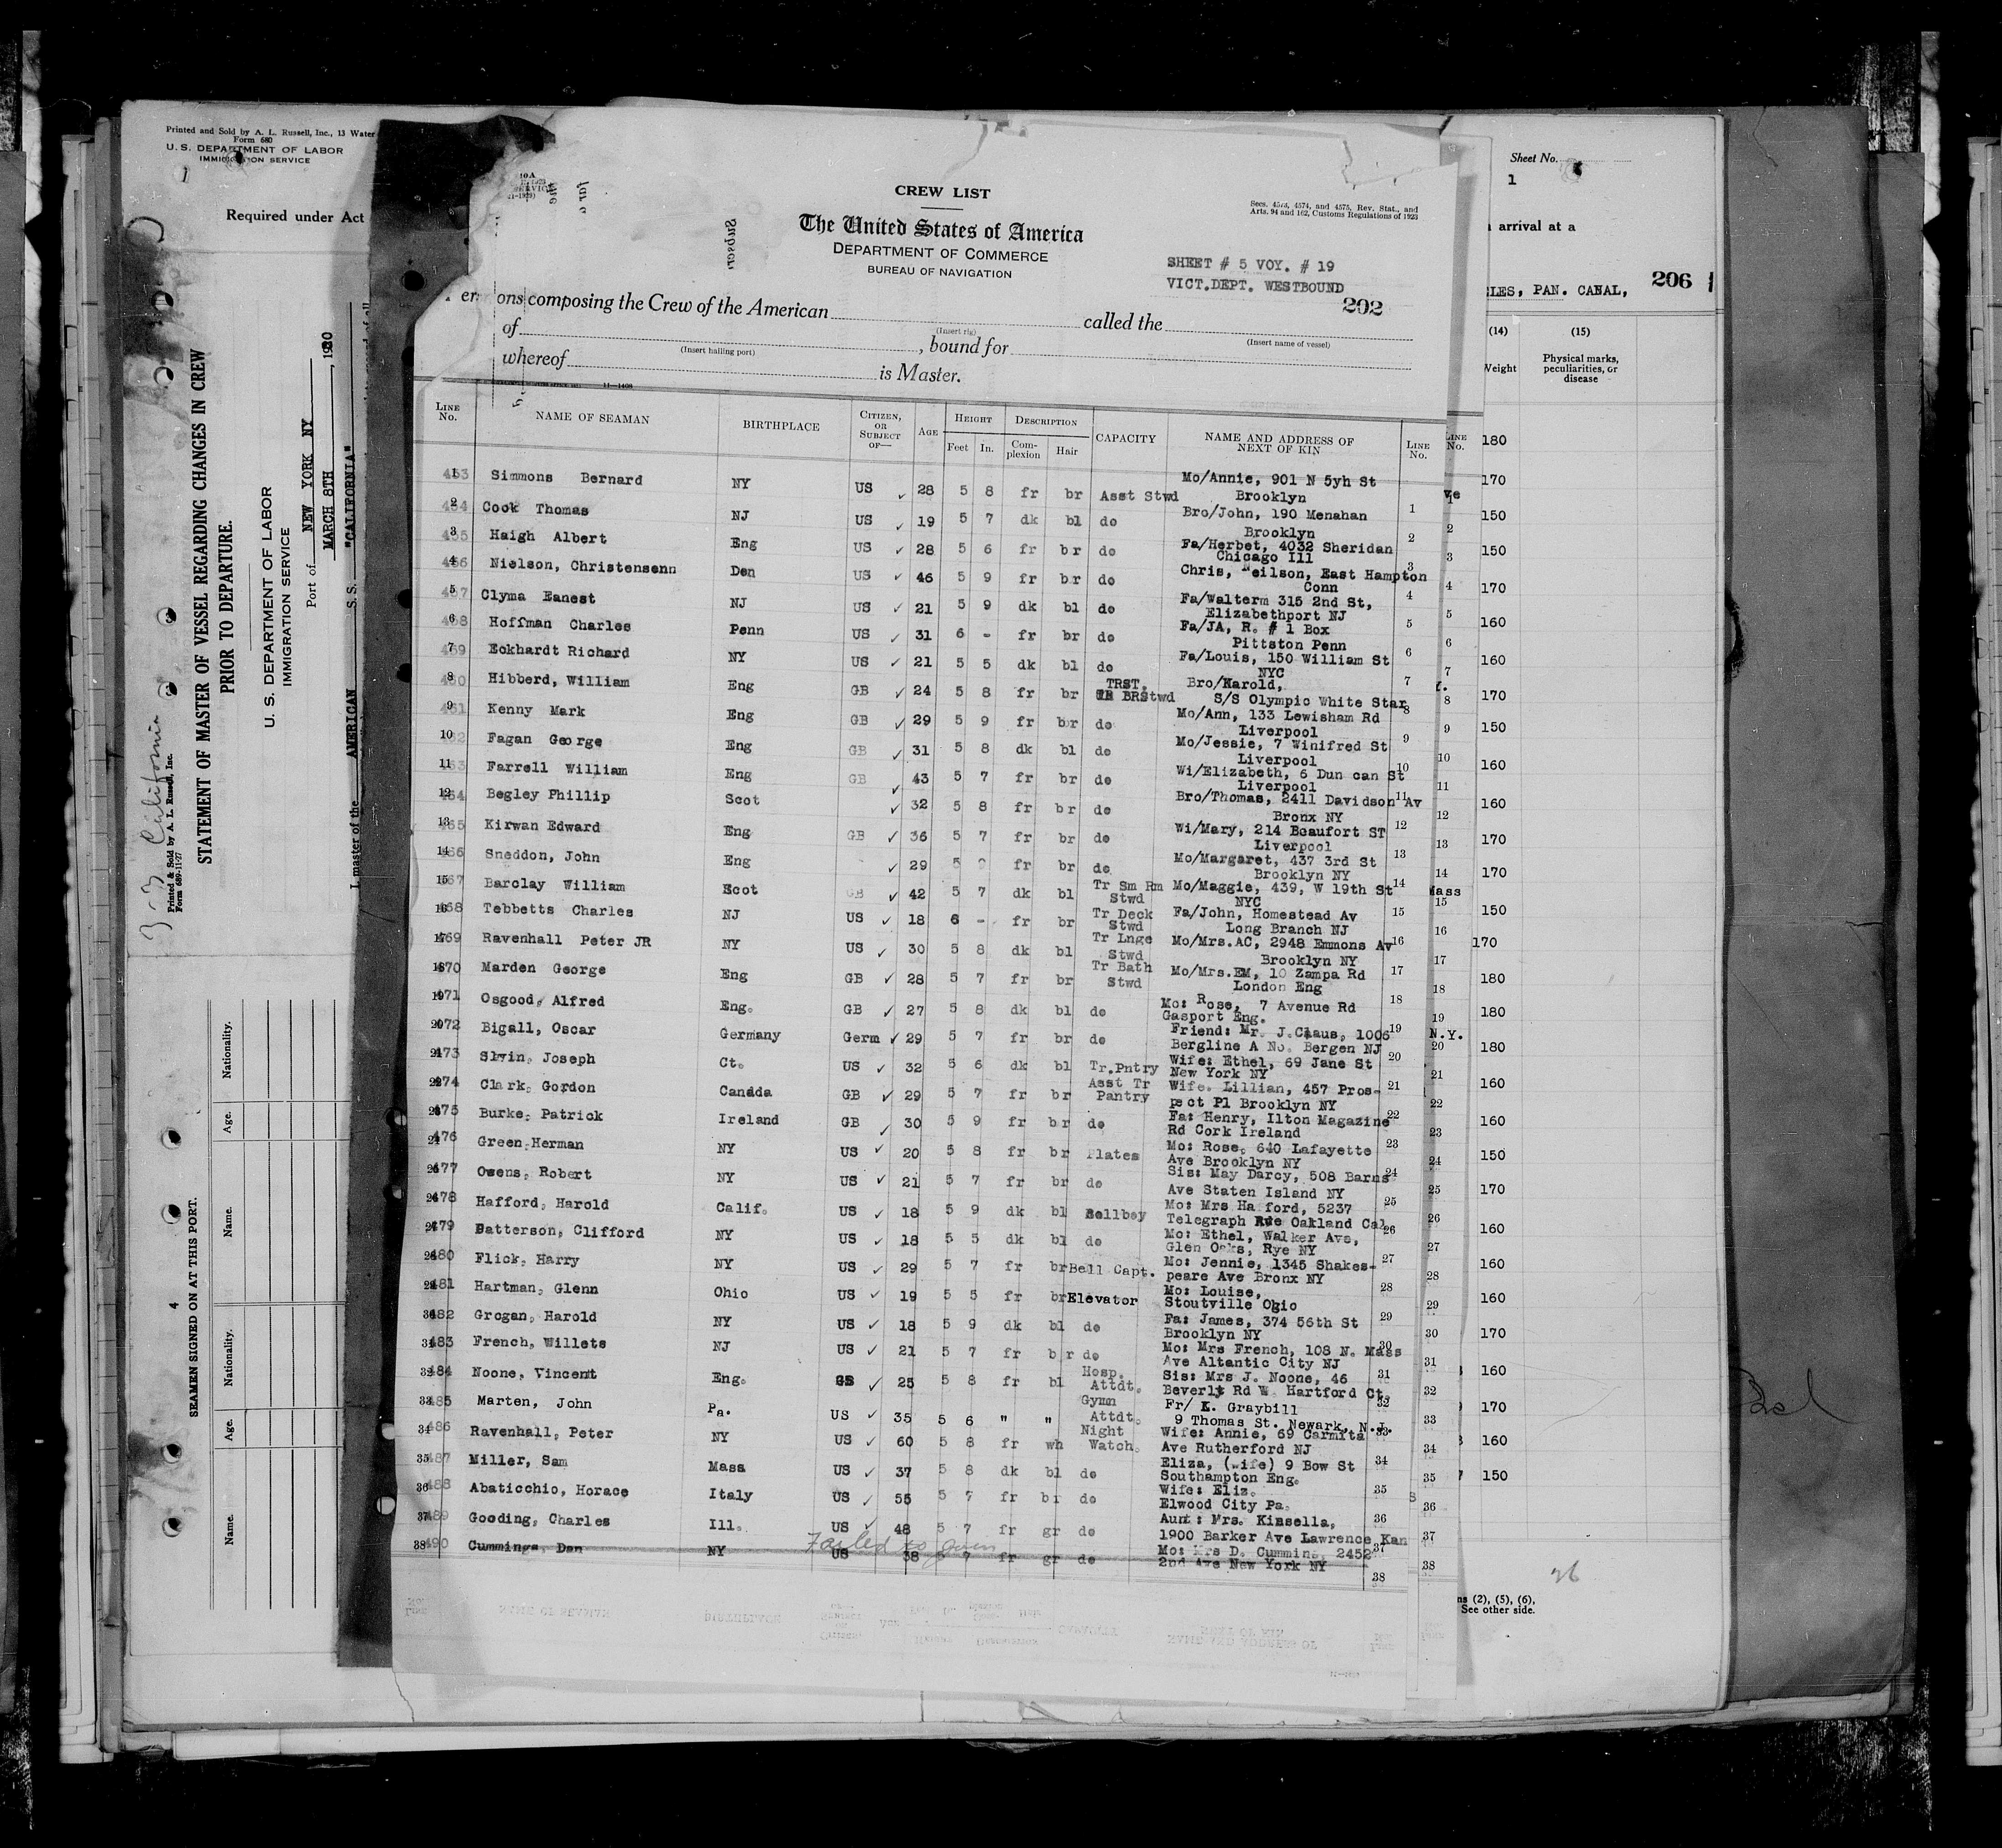 Printed and Sold by A. L. Russell, Inc., 13 Water
Form 680
U. S. DEPARTMENT OF LABOR
IMMIGRATION SERVICE
Required under Act
STATEMENT OF MASTER OF VESSEL REGARDING CHANGES IN CREW
PRIOR TO DEPARTURE.
U. S. DEPARTMENT OF LABOR
IMMIGRATION SERVICE
Port of NEW YORK NY
MARCH 8TH, 1930
I, master of the AMERICAN S. S. "CALIFORNIA"
Printed & Sold by A. L. Russell, Inc.
Form 689-11-27
SEAMEN SIGNED ON AT THIS PORT.
4
Name. Age. Nationality. Name. Age. Nationality.
CREW LIST
The United States of America
DEPARTMENT OF COMMERCE
BUREAU OF NAVIGATION
Secs. 4573, 4574, and 4575, Rev. Stat., and
Arts. 94 and 162, Customs Regulations of 1923
SHEET # 5 VOY. # 19
VICT.DEPT. WESTBOUND
202
ons composing the Crew of the American called the
(Insert rig) (Insert name of vessel)
of , bound for
(Insert hailing port)
whereof is Master.
11-1408
LINE No. NAME OF SEAMAN BIRTHPLACE CITIZEN, OR SUBJECT OF— AGE HEIGHT Feet In. DESCRIPTION Complexion Hair CAPACITY NAME AND ADDRESS OF NEXT OF KIN LINE No.
1 453 Simmons Bernard NY US 28 5 8 fr br Asst Stwd Mo/Annie, 901 N 5yh St Brooklyn
2 454 Cook Thomas NJ US 19 5 7 dk bl do Bro/John, 190 Menahan Brooklyn
3 455 Haigh Albert Eng US 28 5 6 fr br do Fa/Herbet, 4032 Sheridan Chicago Ill
4 456 Nielson, Christensenn Den US 46 5 9 fr br do Chris, Neilson, East Hampton Conn
5 457 Clyma Eanest NJ US 21 5 9 dk bl do Fa/Walterm 315 2nd St, Elizabethport NJ
6 458 Hoffman Charles Penn US 31 6 - fr br do Fa/JA, R. # 1 Box Pittston Penn
7 459 Eckhardt Richard NY US 21 5 5 dk bl do Fa/Louis, 150 William St NYC
8 460 Hibberd, William Eng GB 24 5 8 fr br TRST. BRStwd Bro/Harold, S/S Olympic White Star
9 461 Kenny Mark Eng GB 29 5 9 fr br do Mo/Ann, 133 Lewisham Rd Liverpool
10 462 Fagan George Eng GB 31 5 8 dk bl do Mo/Jessie, 7 Winifred St Liverpool
11 463 Farrell William Eng GB 43 5 7 fr br do Wi/Elizabeth, 6 Dun can St Liverpool
12 464 Begley Phillip Scot 32 5 8 fr br do Bro/Thomas, 2411 Davidson Av Bronx NY
13 465 Kirwan Edward Eng GB 36 5 7 fr br do Wi/Mary, 214 Beaufort ST Liverpool
14 466 Sneddon, John Eng 29 5 fr br do Mo/Margaret, 437 3rd St Brooklyn NY
15 467 Barclay William Scot GB 42 5 7 dk bl Tr Sm Rm Stwd Mo/Maggie, 439, W 19th St NYC
16 468 Tebbetts Charles NJ US 18 6 - fr br Tr Deck Stwd Fa/John, Homestead Av Long Branch NJ
17 469 Ravenhall Peter JR NY US 30 5 8 dk bl Tr Lnge Stwd Mo/Mrs.AC, 2948 Emmons Av Brooklyn NY
18 470 Marden George Eng GB 28 5 7 fr br Tr Bath Stwd Mo/Mrs.EM, 10 Zampa Rd London Eng
19 471 Osgood, Alfred Eng. GB 27 5 8 dk bl do Mo: Rose, 7 Avenue Rd Gasport Eng.
20 472 Bigall, Oscar Germany Germ 29 5 7 fr br do Friend: Mr. J.Claus, 1006 Bergline A No. Bergen NJ
21 473 Slvin, Joseph Ct. US 32 5 6 dk bl Tr.Pntry Wife: Ethel, 69 Jane St New York NY
22 474 Clark, Gordon Canada GB 29 5 7 fr br Asst Tr Pantry Wife. Lillian, 457 Prospect Pl Brooklyn NY
23 475 Burke, Patrick Ireland GB 30 5 9 fr br do Fa: Henry, Ilton Magazine Rd Cork Ireland
24 476 Green Herman NY US 20 5 8 fr br Plates Mo: Rose, 640 Lafayette Ave Brooklyn NY
25 477 Owens, Robert NY US 21 5 7 fr br do Sis: May Darcy, 508 Barns Ave Staten Island NY
26 478 Hafford, Harold Calif. US 18 5 9 dk bl Bellboy Mo: Mrs Ha ford, 5237 Telegraph Ave Oakland Cal
27 479 Patterson, Clifford NY US 18 5 5 dk bl do Mo: Ethel, Walker Ave, Glen Oaks, Rye NY
28 480 Flick, Harry NY US 29 5 7 fr br Bell Capt. Mo: Jennie, 1345 Shakes- peare Ave Bronx NY
29 481 Hartman, Glenn Ohio US 19 5 5 fr br Elevator Mo: Louise, Stoutville Ogio
30 482 Grogan, Harold NY US 18 5 9 dk bl do Fa: James, 374 56th St Brooklyn NY
31 483 French, Willets NJ US 21 5 7 fr br do Mo: Mrs French, 108 N. Mass Ave Altantic City NJ
32 484 Noone, Vincent Eng. GB 25 5 8 fr bl Hosp. Attdt. Sis: Mrs J. Noone, 46 Beverlt Rd W. Hartford Ct.
33 485 Marten, John Pa. US 35 5 6 " " Gymn Attdt. Fr/ K. Graybill 9 Thomas St. Newark, N.J.
34 486 Ravenhall, Peter NY US 60 5 8 fr wh Night Watch. Wife: Annie, 69 Carmita Ave Rutherford NJ
35 487 Miller, Sam Mass US 37 5 8 dk bl do Eliza, (wife) 9 Bow St Southampton Eng.
36 488 Abaticchio, Horace Italy US 55 5 7 fr br do Wife: Eliz. Elwood City Pa.
37 489 Gooding, Charles Ill. US 48 5 7 fr gr do Aunt: Mrs. Kinsella, 1900 Barker Ave Lawrence Kan
38 490 Cummings, Dan NY US 38 5 7 fr gr do Mo: Mrs D. Cummins, 2452 2nd Ave New York NY
Failed to join
Sheet No.
1
arrival at a
LES, PAN. CANAL,
206
(14) (15)
Weight
Physical marks, peculiarities, or disease
180
170
150
150
170
160
160
170
150
160
160
170
170
150
170
180
180
180
160
160
150
170
160
160
160
170
160
170
160
150
26
(2), (5), (6),
See other side.